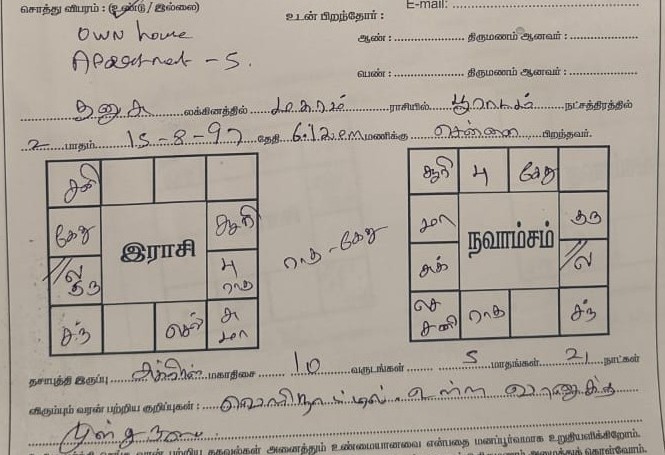 சொத்து விபரம் : (உண்டு / இல்லை)
E-mail:
உடன் பிறந்தோர் :
Own house
Apartment - 5.
ஆண் : திருமணம் ஆனவர் :
பெண் : திருமணம் ஆனவர் :
தனுசு லக்கினத்தில் மகரம் ராசியில் பூராடம் நட்சத்திரத்தில்
2 பாதம் 15-8-97 தேதி மணிக்கு சென்னை பிறந்தவர்.
சனி
சூரி பு கேது
கேது சூரி
மா குரு
இராசி
ராகு - கேது
நவாம்சம்
ல குரு பு ராகு
சுக் ல
சந் செவ் சு மா
செ சனி ராகு சந்
தசாபுத்தி இருப்பு சுக்கிரன் மகாதிசை 10 வருடங்கள் 5 மாதங்கள் 21 நாட்கள்
விரும்பும் வரன் பற்றிய குறிப்புகள் : வெளிநாட்டில் உள்ள வரனுக்கு
முன்னுரிமை
வரன் பற்றிய தகவல்கள் அனைத்தும் உண்மையானவை என்பதை மனப்பூர்வமாக உறுதியளிக்கிறோம்.